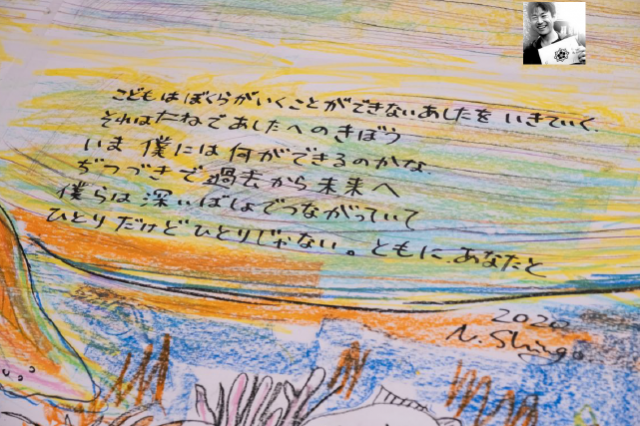 こどもはぼくらがいくことができないあしたを いきていく.
それはたねで あしたへのきぼう
いま 僕には 何ができるのかな.
ぢつづきで過去から未来へ
僕らは深いばしょでつながっていて
ひとりだけどひとりじゃない。ともに.あなたと
2020
N. Shingo